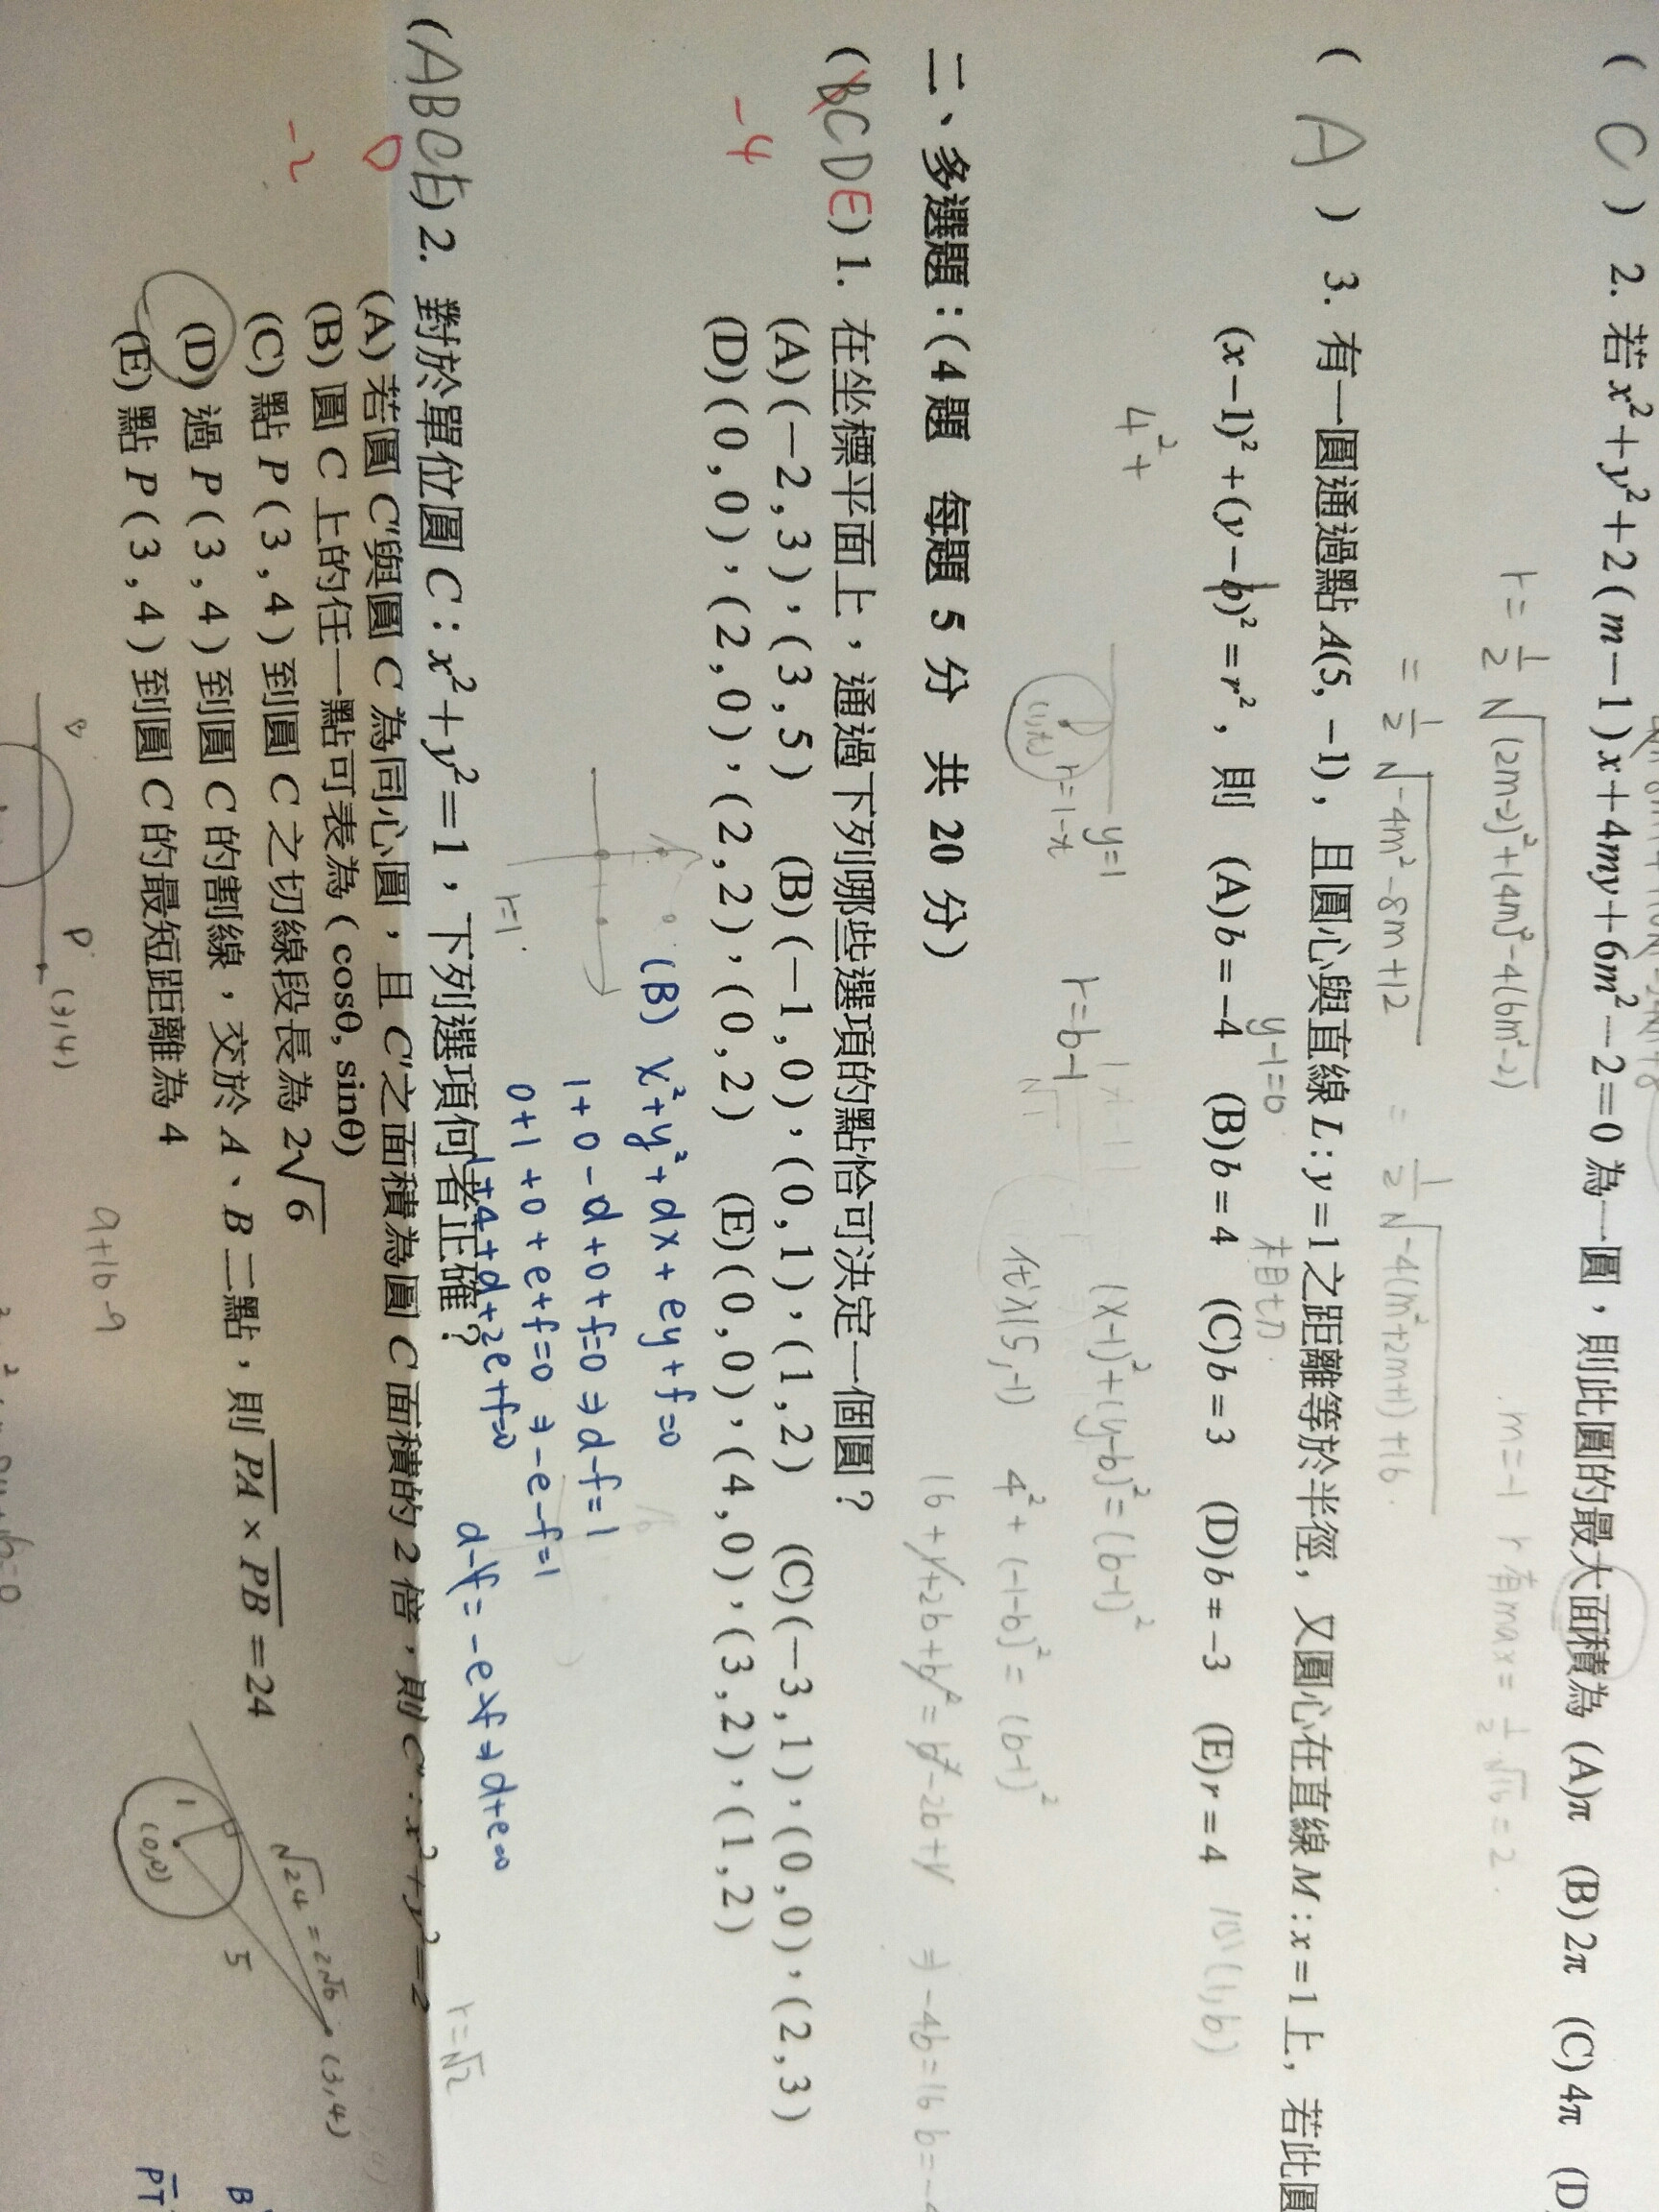 r = 1/2 √(2m-2)²+(4m)²-4(6m²-2)
( C ) 2. 若 x²+y²+2(m-1)x+4my+6m²-2=0 為一圓，則此圓的最大面積為 (A)π (B)2π (C)4π (D
= 1/2 √-4m²-8m+12 = 1/2 √-4(m²+2m+1)+16
m=-1 r有max = 1/2·√16 = 2.
( A ) 3. 有一圓通過點 A(5, -1)，且圓心與直線 L : y = 1 之距離等於半徑，又圓心在直線 M : x = 1 上，若此圓
y-1=0
相切
(x-1)²+(y-b)²=r²，則 (A)b=-4 (B)b=4 (C)b=3 (D)b=-3 (E)r=4
(1,b)
4²+
y=1
r=b-1
(x-1)²+(y-b)²=(b-1)²
代入(5,-1)
4²+(-1-b)²=(b-1)²
16+1+2b+b²=b²-2b+1 ⇒ -4b=16 b=-4
二、多選題：(4 題 每題 5 分 共 20 分)
(BCDE) 1. 在坐標平面上，通過下列哪些選項的點恰可決定一個圓？
(A)(-2,3)，(3,5) (B)(-1,0)，(0,1)，(1,2) (C)(-3,1)，(0,0)，(2,3)
-4
(D)(0,0)，(2,0)，(2,2)，(0,2) (E)(0,0)，(4,0)，(3,2)，(1,2)
(B) x²+y²+dx+ey+f=0
1+0-d+0+f=0 ⇒ d-f=1
0+1+0+e+f=0 ⇒ -e-f=1
1+4+d+2e+f=0
d-f=-e-f ⇒ d+e=0
r=1
(ABCE) 2. 對於單位圓 C : x²+y²=1，下列選項何者正確？
(A) 若圓 C'與圓 C 為同心圓，且 C'之面積為圓 C 面積的 2 倍，則 C' : x²+y²=2
r=√2
D
(B) 圓 C 上的任一點可表為 (cosθ, sinθ)
-2
(C) 點 P(3,4) 到圓 C 之切線段長為 2√6
(D) 過 P(3,4) 到圓 C 的割線，交於 A、B 二點，則 PA × PB = 24
(E) 點 P(3,4) 到圓 C 的最短距離為 4
√24=2√6
(3,4)
5
1
(0,0)
9+16-9
P
(3,4)
B
PT